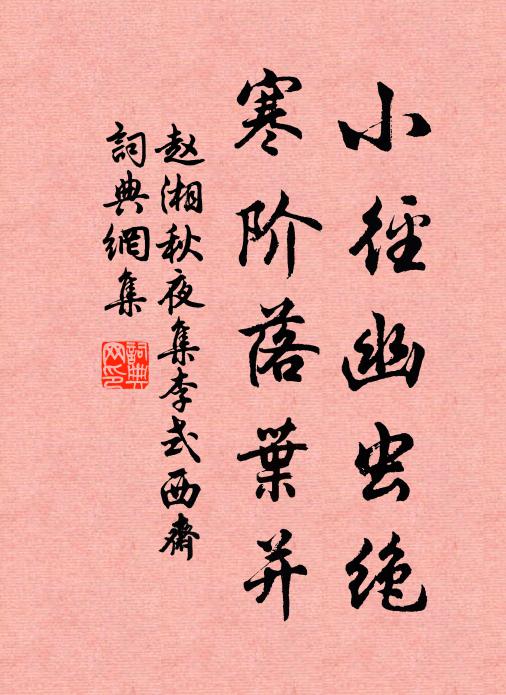 小径幽虫绝
寒阶落葉并
赵湘秋夜集李式西齋
詞典網集
詞典网印